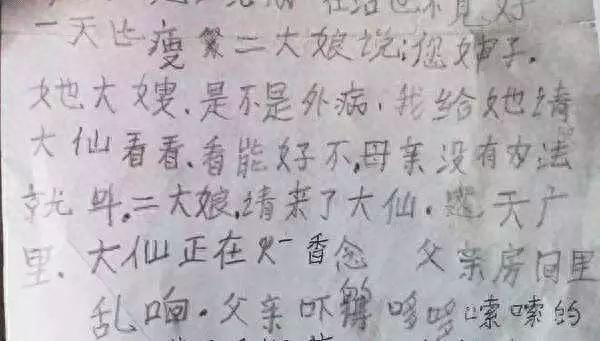 也不见好
一天 瘦 二大娘说:您婶子.
她大嫂.是不是外病.我给她请
大仙看看.看能好不.母亲没有办法
就叫.二大娘.请来了大仙. 天广
里.大仙正在 香念 父亲房间里
乱响.父亲吓 哆哆嗦嗦的